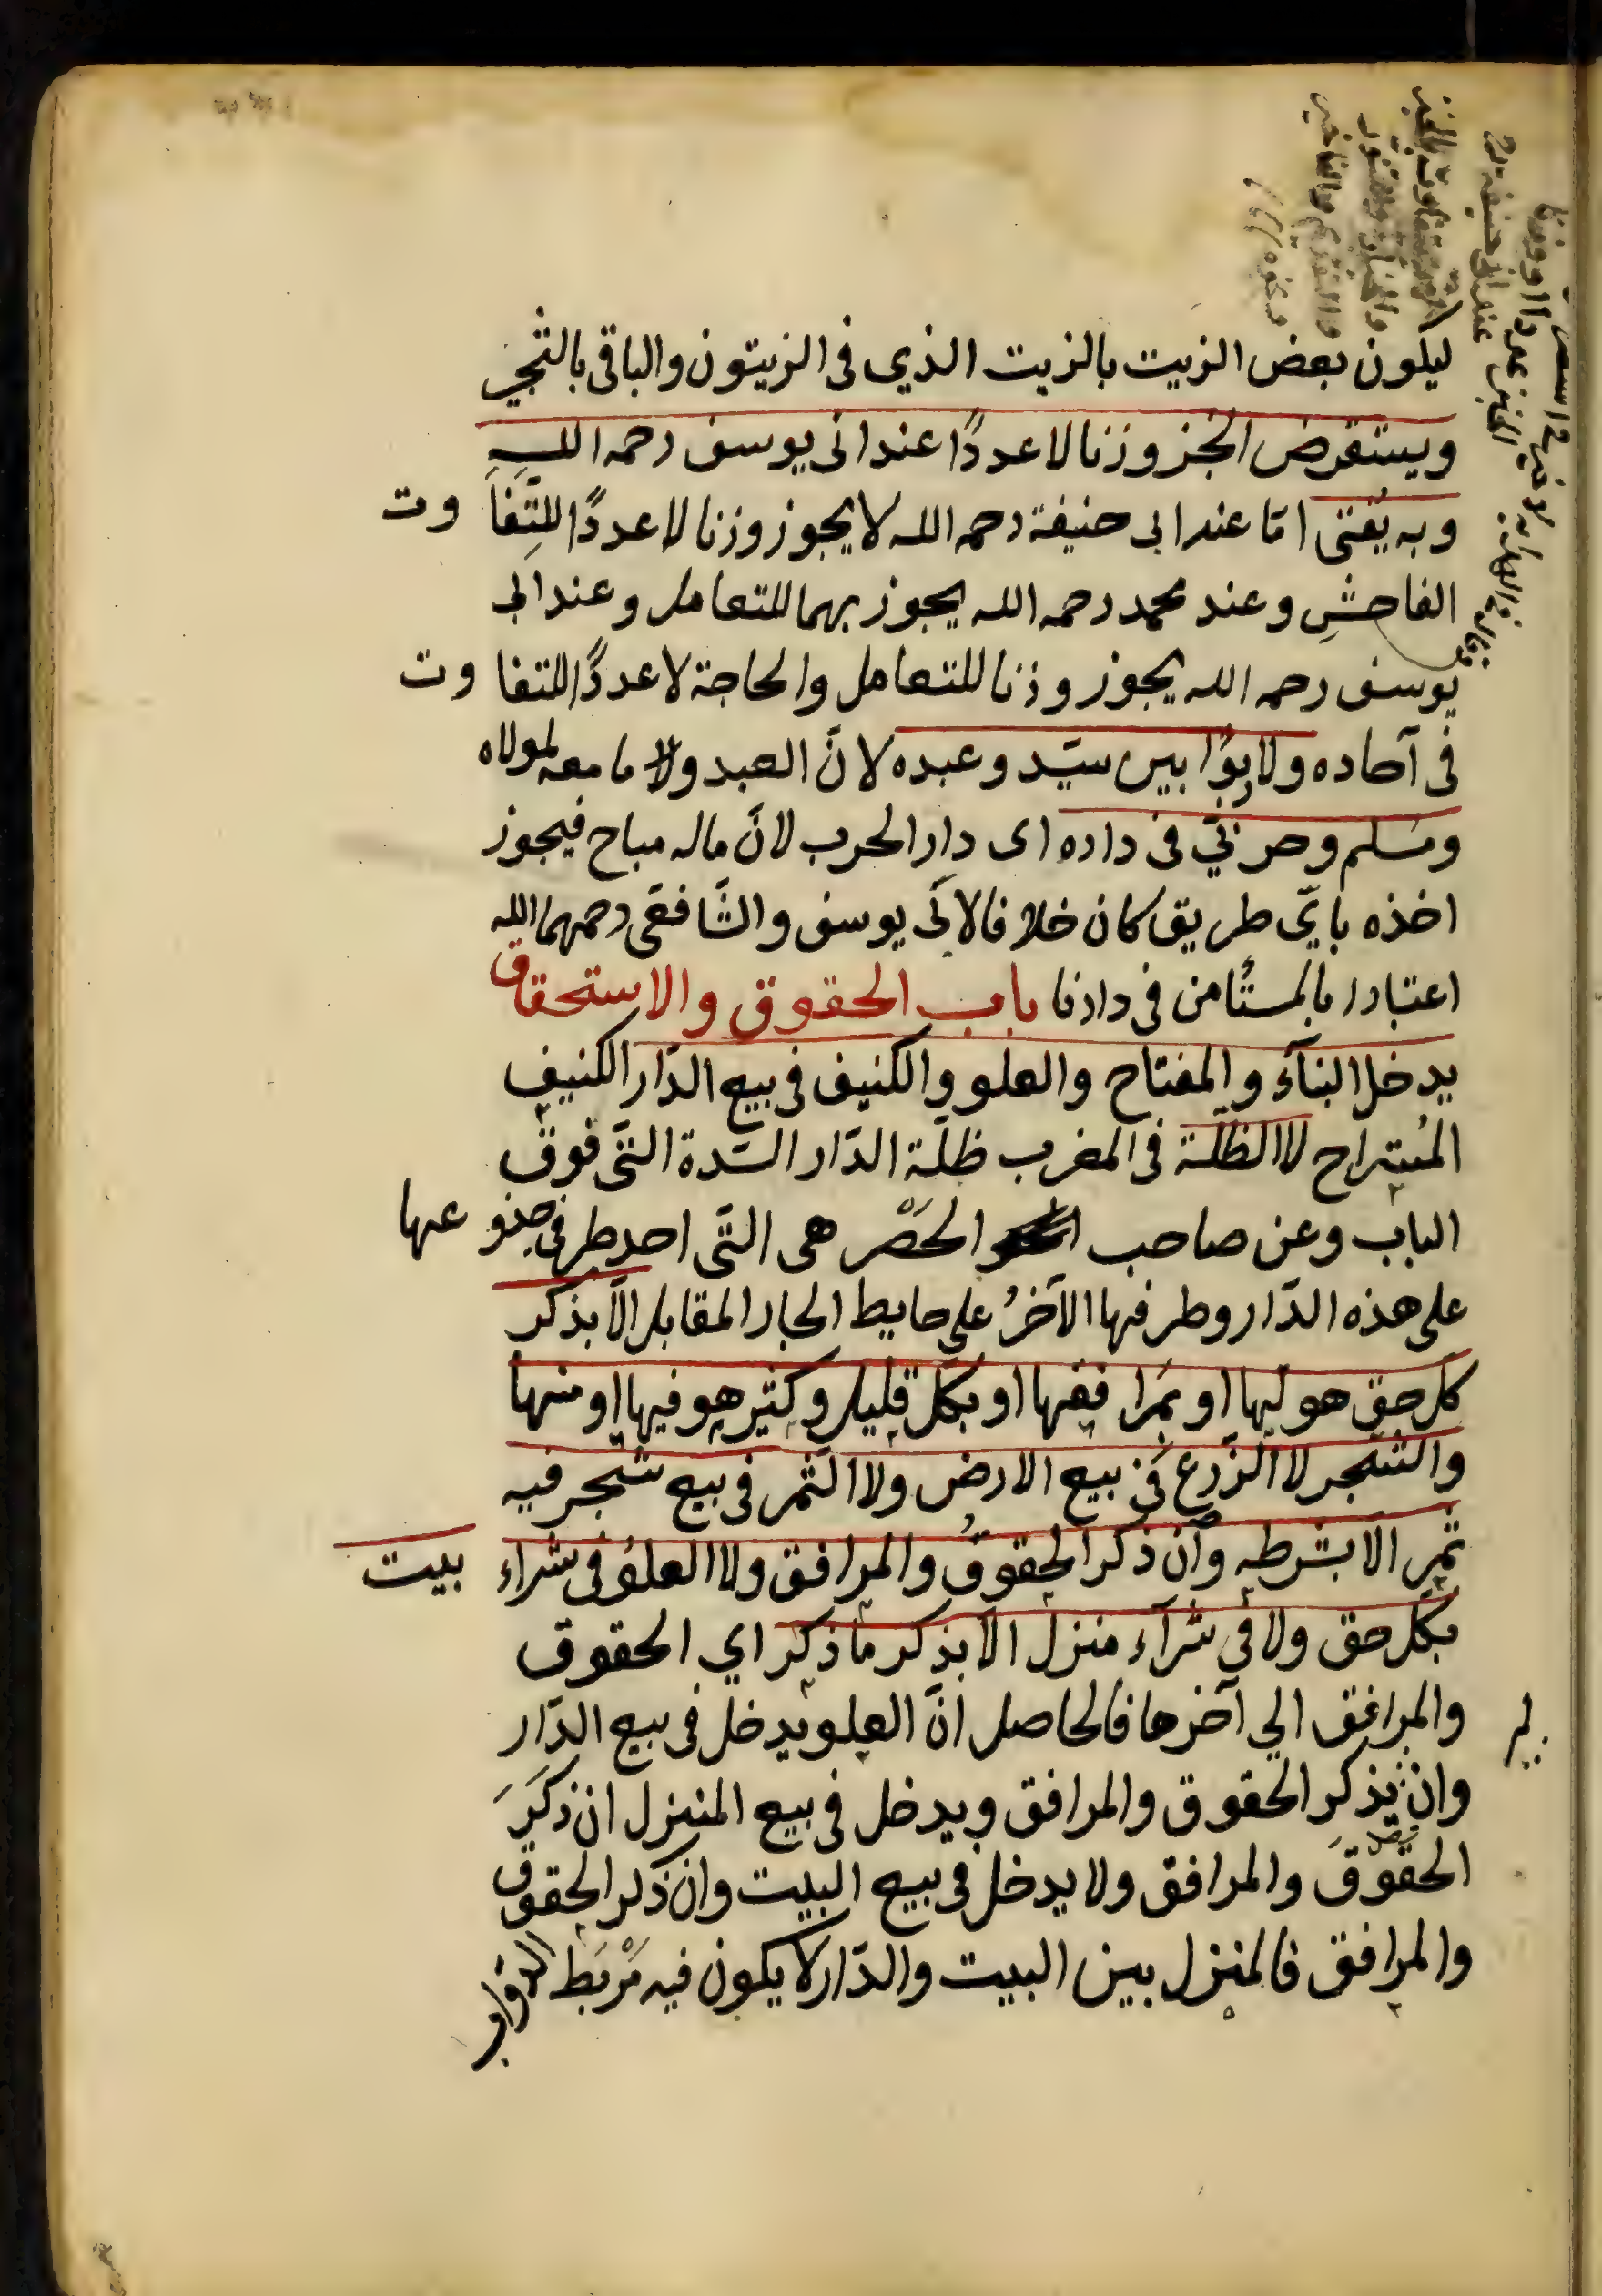 ليكون بعض الزيت بالزيت الذي فى الزيتون والباقى بالثجير
ويستقرض الخبز وزنا لا عددًا عند ابى يوسف رحمه الله
وبه يُفتى امّا عند ابى حنيفة رحمه الله لا يجوز وزنا لا عددًا للتِّفاوت
الفاحشِ وعند محمد رحمه الله يجوز بهما للتعامل وعند ابى
يوسف رحمه الله يجوز وزنا للتعامل والحاجة لا عددًا للتفاوت
فى آحاده ولا ربوًا بين سيّد وعبده لانّ العبد ولا ما معه لمولاه
ومسلم وحربّي فى داره اى دار الحرب لانّ ماله مباح فيجوز
اخذه بايّ طريق كان خلافا لابى يوسف والشّافعى رحمهما الله
اعتبارا بالمستأمن فى دارنا باب الحقوق والاستحقاق
يدخل البنآء والمفتاح والعلو والكنيف فى بيع الدّار الكنيف
المُستراح لا الظلّة فى المغرب ظلّة الدّار السّدة التّى فوق
الباب وعن صاحب الحَصْر هى التّى احد طرفى جذوعها
على هذه الدّار وطرفها الآخرُ على حايط الجار المقابل الّا بذكر
كل حق هو لها او بمَرافقها او بكلّ قليل وكثير هو فيها او منها
والشّجر لا الزّرع فى بيع الارض ولا الثّمر فى بيع شجر فيه
ثمر الّا بشرطه وان ذكر الحقوقُ والمرافق ولا العلوُ فى شراء بيت
بكلّ حق ولا فى شرآء منزل الّا بذكر ما ذكر اي الحقوق
والمرافق الي آخرها فالحاصل انّ العلو يدخل فى بيع الدّار
وان لم يذكر الحقوق والمرافق ويدخل فى بيع المنزل ان ذكَرَ
الحقوقَ والمرافق ولا يدخل فى بيع البيت وان ذكر الحقوق
والمرافق فالمنزل بين البيت والدّار لا يكون فيه مَرْبَط الدّواب